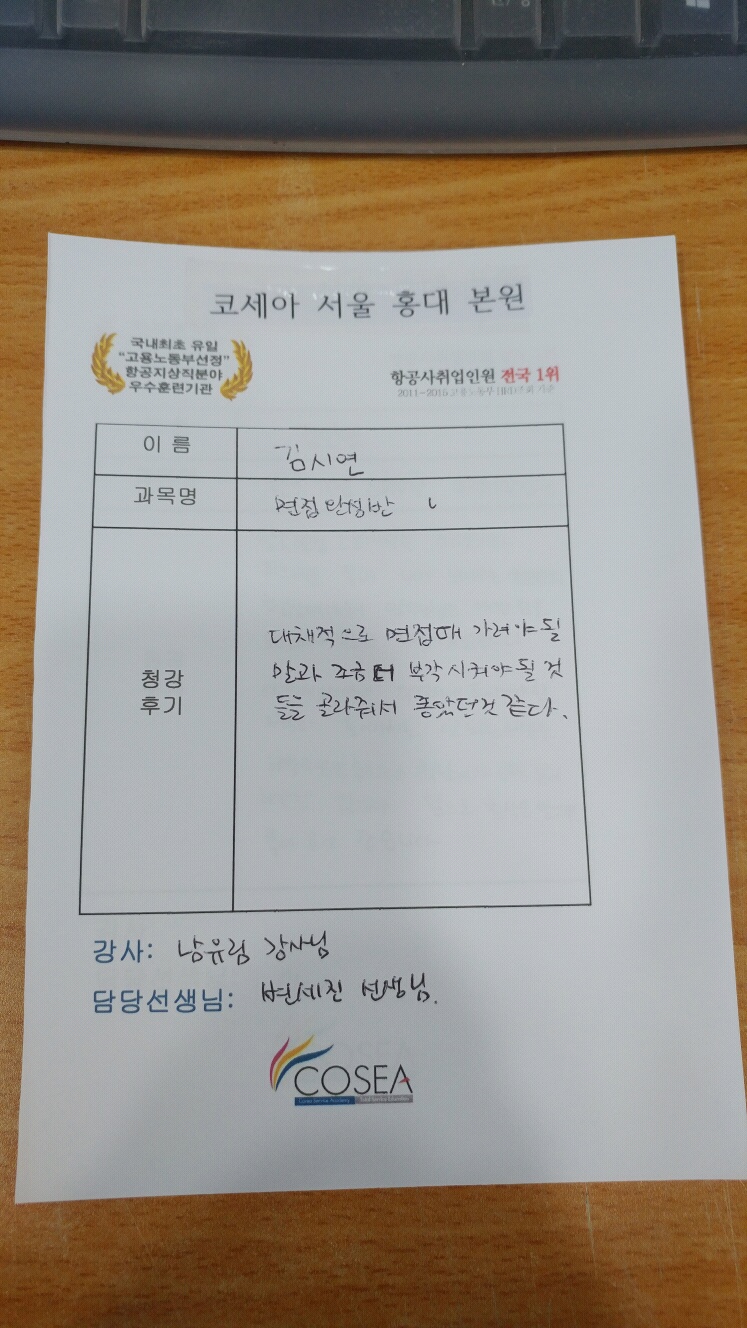 코세아 서울 홍대 본원
국내최초 유일
"고용노동부선정"
항공지상직분야
우수훈련기관
항공사취업인원 전국 1위
2011~2015 고용노동부 HRD조회 기준
이 름
김시연
과목명
면접완성반
청강
후기
대채적으로 면접때 가려야 될
말과 조금 더 부각시켜야 될 것
들을 골라주셔서 좋았던것 같다.
강사: 남유림 강사님
담당선생님: 변세진 선생님.
COSEA
Korea Service Academy Total Service Education